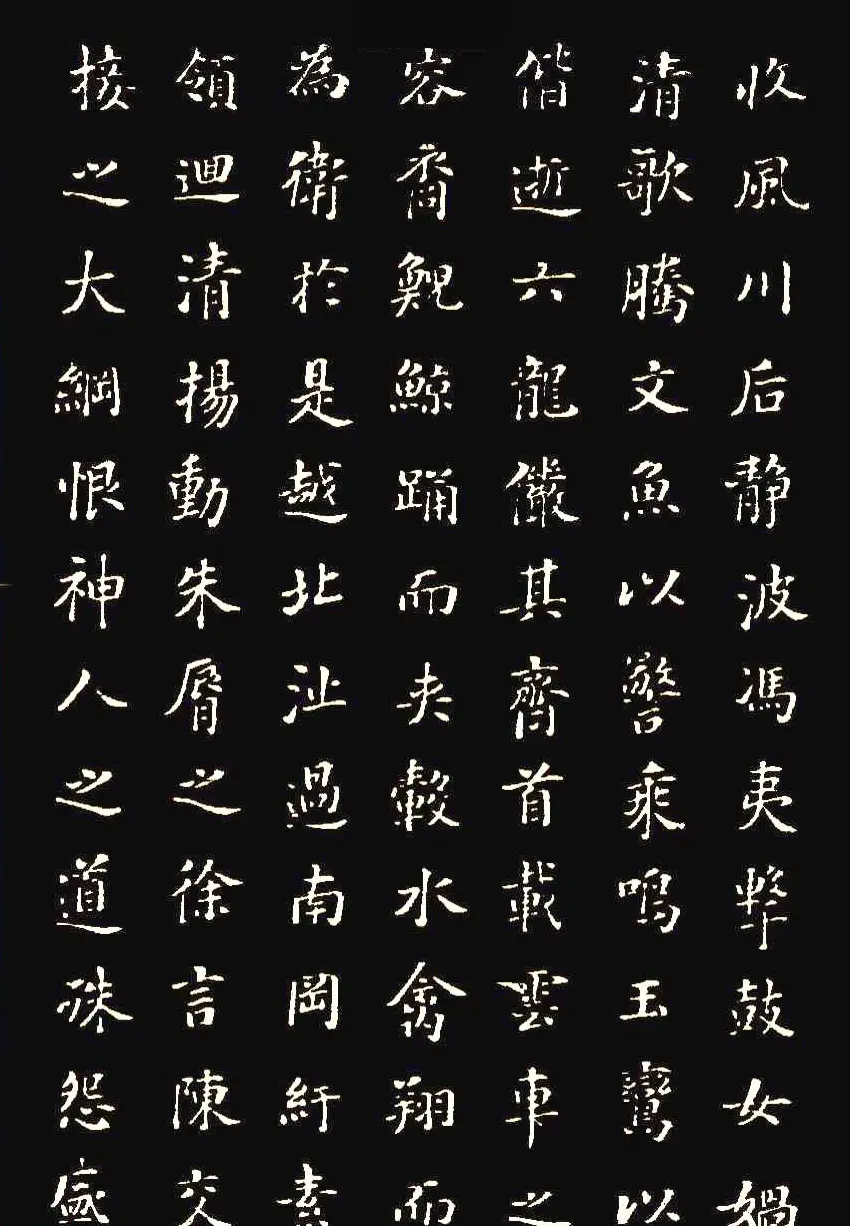 收風川后静波馮夷擊鼓女媧
清歌騰文魚以警乘鳴玉鸞以
偕逝六龍儼其齊首載雲車之
容裔鯢鯨踊而夾轂水禽翔而
為衛於是越北沚過南岡紆素
領迴清揚動朱脣之徐言陳交
接之大綱恨神人之道殊怨盛